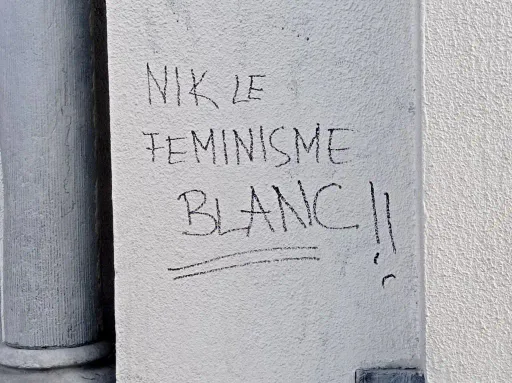 NIK LE
FEMINISME
BLANC!!